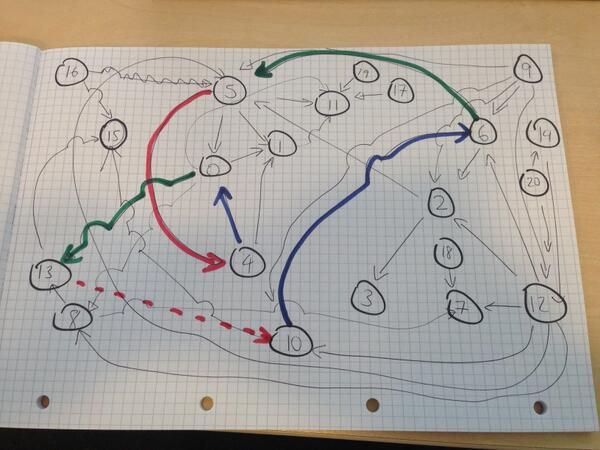 16
9
5
19
17
11
15
6
14
1
0
20
2
18
4
13
3
7
12
8
10